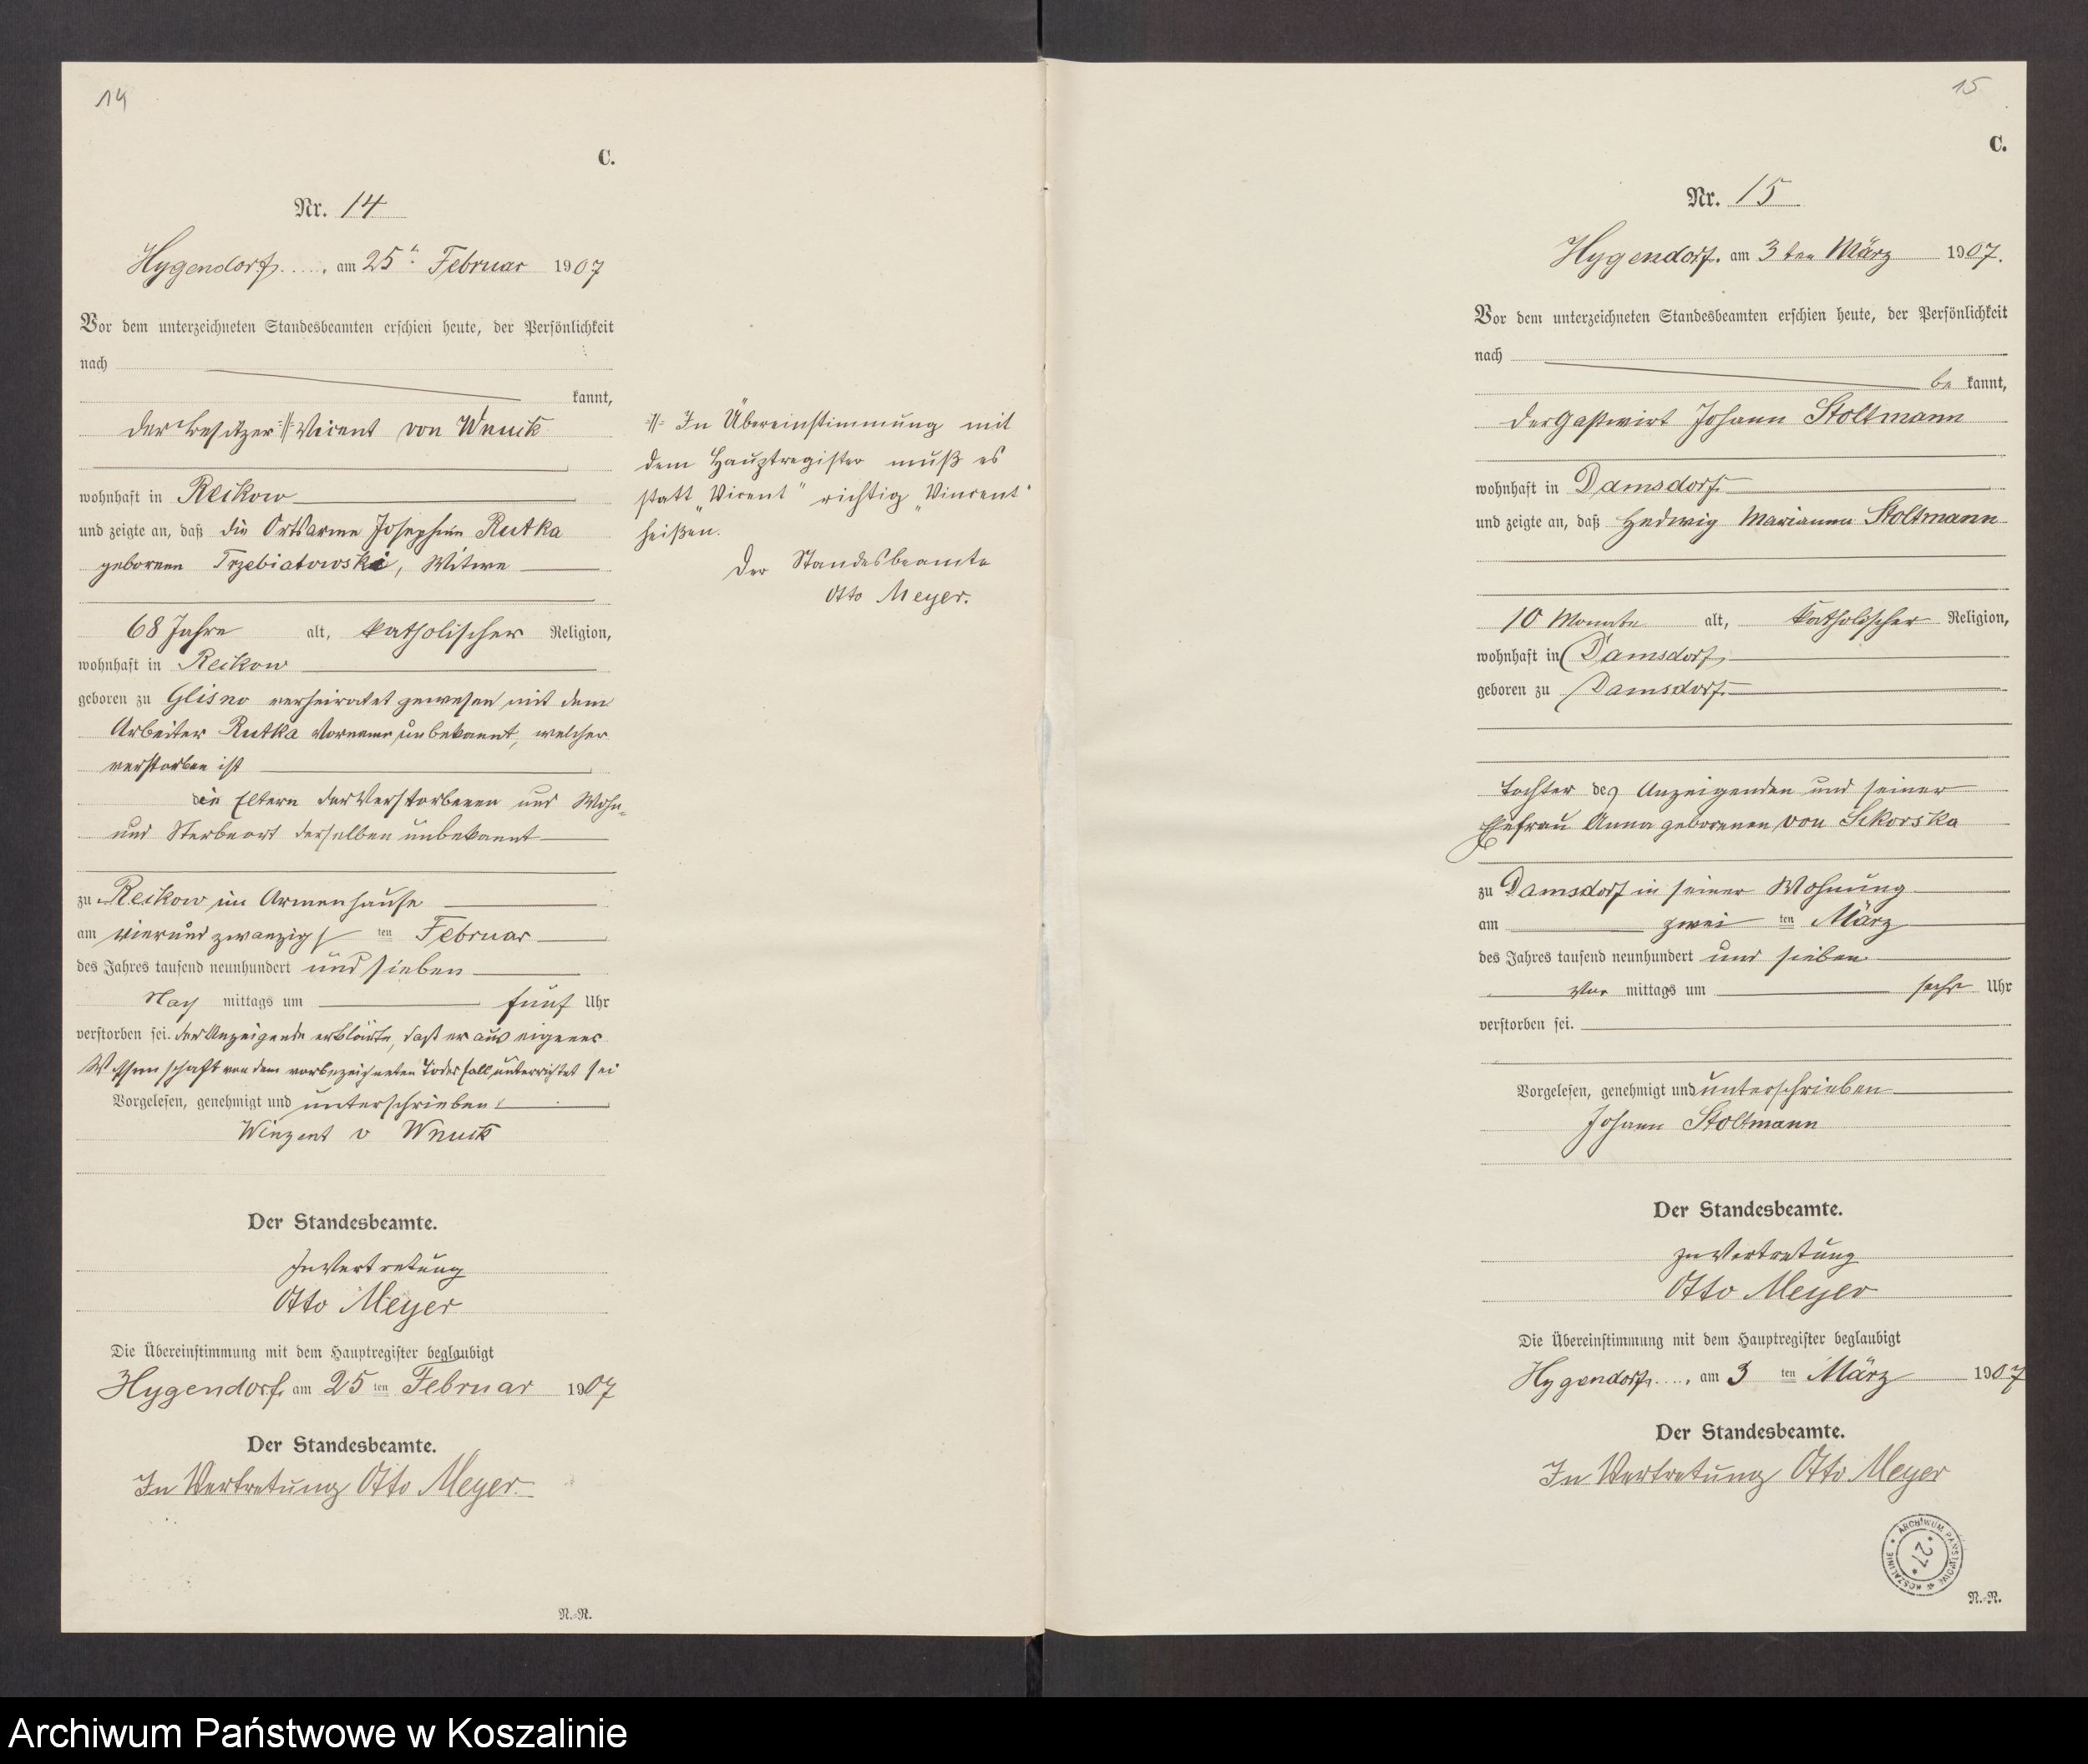 14
C.
Nr. 14
Hygendorf, am 25ten Februar 1907
Vor dem unterzeichneten Standesbeamten erschien heute, der Persönlichkeit
nach
kannt,
der Besitzer Vicent von Wnuck
wohnhaft in Reikow
und zeigte an, daß die Ortsarme Josephine Rutka
geborene Trzebiatowski, Witwe
68 Jahre alt, katholischer Religion,
wohnhaft in Reikow
geboren zu Glisno verheiratet gewesen mit dem
Arbeiter Rutka Vorname unbekannt, welcher
verstorben ist
die Eltern der Verstorbenen und Wohn-
und Sterbeort derselben unbekannt
zu Reikow im Armenhause
am vierundzwanzigsten Februar
des Jahres tausend neunhundert und sieben
Nachmittags um fünf Uhr
verstorben sei. der Anzeigende erklärte, daß er aus eigener
Wissenschaft von dem vorbezeichneten Todesfall unterrichtet sei
Vorgelesen, genehmigt und unterschrieben
Winzent v Wnuck
Der Standesbeamte.
In Vertretung
Otto Meyer
Die Übereinstimmung mit dem Hauptregister beglaubigt
Hygendorf, am 25ten Februar 1907
Der Standesbeamte.
In Vertretung Otto Meyer
N.-R.
In Übereinstimmung mit
dem Hauptregister muß es
statt „Vicent" richtig „Vincent"
heißen.
Der Standesbeamte
Otto Meyer.
15
C.
Nr. 15
Hygendorf, am 3ten März 1907.
Vor dem unterzeichneten Standesbeamten erschien heute, der Persönlichkeit
nach
be kannt,
der Gastwirt Johann Stoltmann
wohnhaft in Damsdorf
und zeigte an, daß Hedwig Marianna Stoltmann
10 Monate alt, katholischer Religion,
wohnhaft in Damsdorf
geboren zu Damsdorf
Tochter des Anzeigenden und seiner
Ehefrau Anna geborenen von Sikorska
zu Damsdorf in seiner Wohnung
am zwei ten März
des Jahres tausend neunhundert und sieben
Vor mittags um sechs Uhr
verstorben sei.
Vorgelesen, genehmigt und unterschrieben
Johann Stoltmann
Der Standesbeamte.
In Vertretung
Otto Meyer
Die Übereinstimmung mit dem Hauptregister beglaubigt
Hygendorf, am 3 ten März 1907
Der Standesbeamte.
In Vertretung Otto Meyer
ARCHIWUM PAŃSTWOWE W KOSZALINIE
*27*
N.-R.
Archiwum Państwowe w Koszalinie